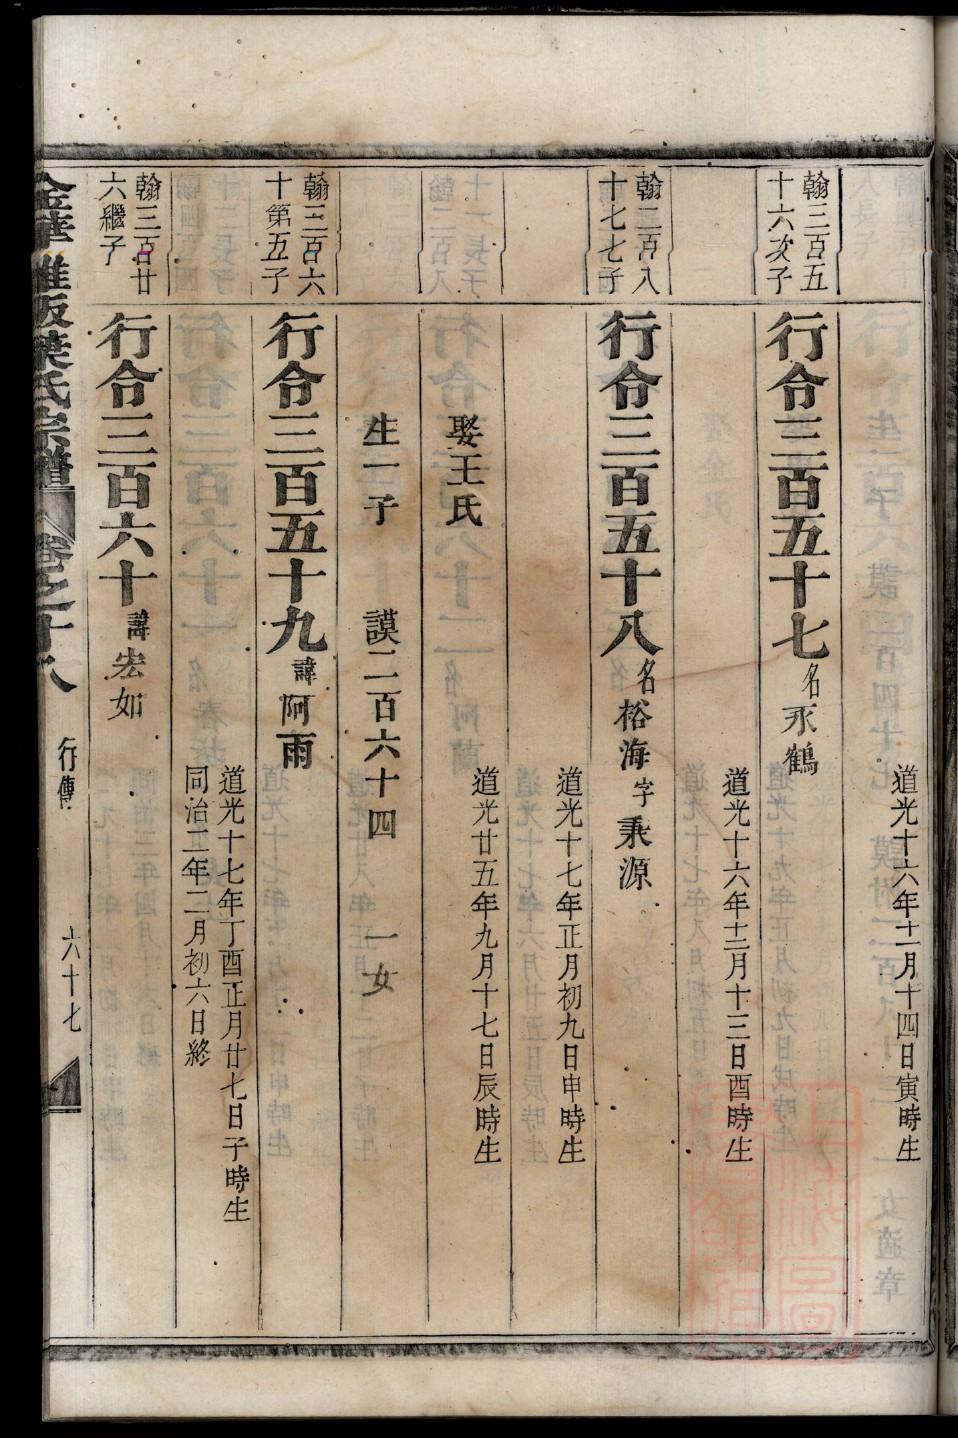 道光十六年十一月十四日寅時生
翰三百五
十六次子
行令三百五十七名永鶴
道光十六年十二月十三日酉時生
翰二百八
十七七子
行令三百五十八名裕海字秉源
道光十七年正月初九日申時生
道光廿五年九月十七日辰時生
娶王氏
生一子 謨二百六十四 一女
翰三百六
十第五子
行令三百五十九諱阿雨
道光十七年丁酉正月廿七日子時生
同治二年二月初六日終
翰三百廿
六繼子
行令三百六十諱宏如
金華 雅畈葉氏宗譜 卷之十八 行傳 六十七